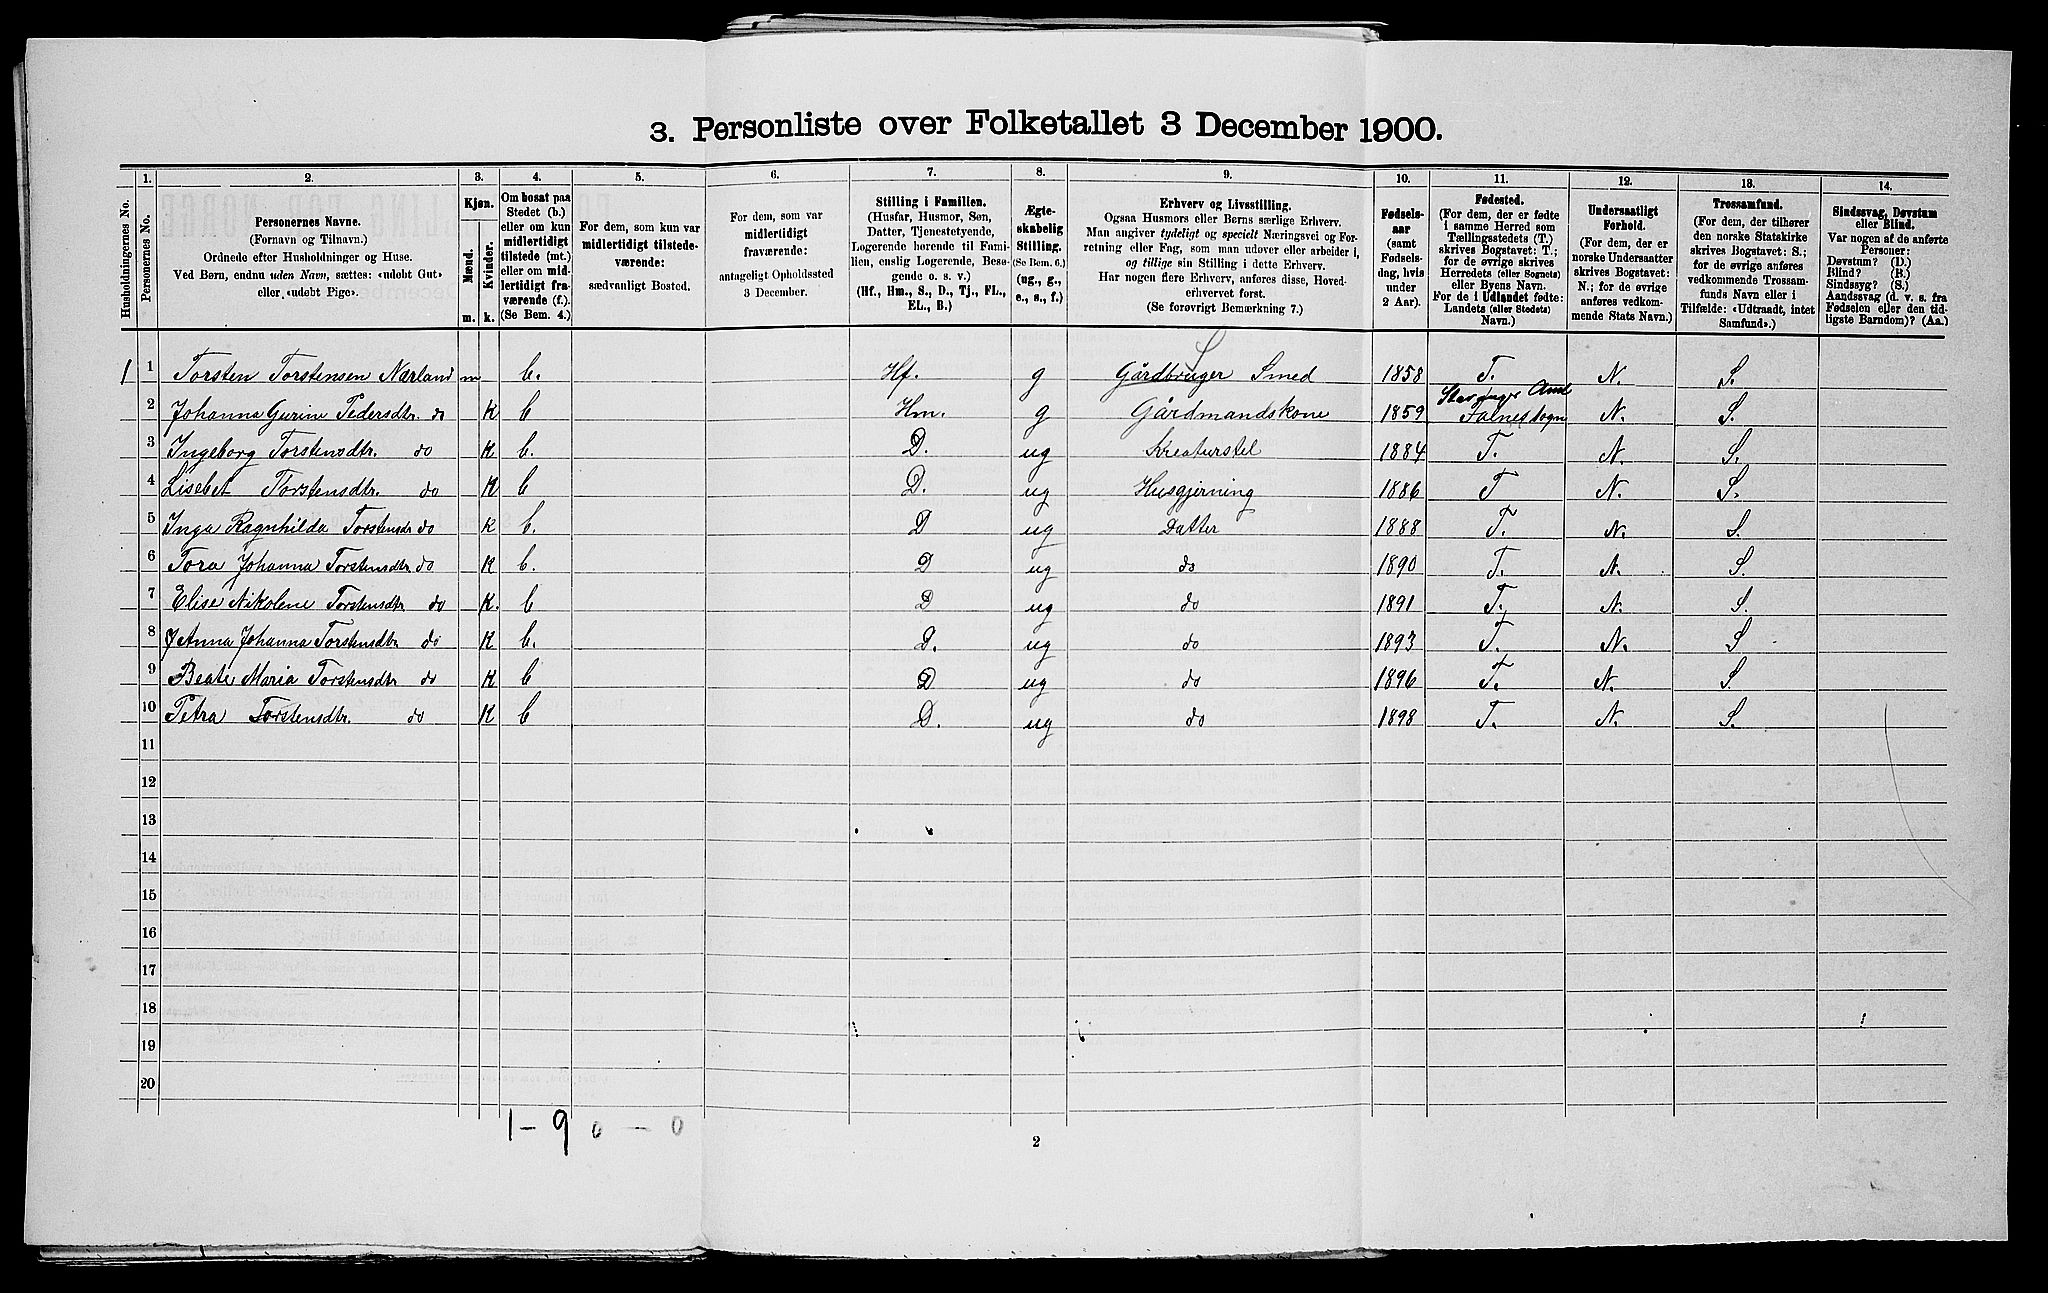 3. Personliste over Folketallet 3 December 1900.
1. 2. 3. 4. 5. 6. 7. 8. 9. 10. 11. 12. 13. 14.
Husholdningernes No.
Personernes No.
Personernes Navne.
(Fornavn og Tilnavn.)
Ordnede efter Husholdninger og Huse.
Ved Børn, endnu uden Navn, sættes: «udøbt Gut»
eller «udøbt Pige».
Kjøn.
Mænd.
Kvinder.
m. k.
Om bosat paa
Stedet (b.)
eller om kun
midlertidigt
tilstede (mt.)
eller om mid-
lertidigt fra-
værende (f.).
(Se Bem. 4.)
For dem, som kun var
midlertidigt tilstede-
værende:
sædvanligt Bosted.
For dem, som var
midlertidigt
fraværende:
antageligt Opholdssted
3 December.
Stilling i Familien.
(Husfar, Husmor, Søn,
Datter, Tjenestetyende,
Logerende hørende til Fami-
lien, enslig Logerende, Besø-
gende o. s. v.)
(Hf., Hm., S., D., Tj., FL.,
EL., B.)
Ægte-
skabelig
Stilling.
(Se Bem. 6.)
(ug., g.,
e., s., f.)
Erhverv og Livsstilling.
Ogsaa Husmors eller Børns særlige Erhverv.
Man angiver tydeligt og specielt Næringsvei og For-
retning eller Fag, som man udøver eller arbeider i,
og tillige sin Stilling i dette Erhverv.
Har nogen flere Erhverv, anføres disse, Hoved-
erhvervet først.
(Se forøvrigt Bemærkning 7.)
Fødsels-
aar
(samt
Fødsels-
dag, hvis
under
2 Aar).
Fødested.
(For dem, der er fødte
i samme Herred som
Tællingsstedets (T.)
skrives Bogstavet: T.;
for de øvrige skrives
Herredets (eller Sognets)
eller Byens Navn.
For de i Udlandet fødte:
Landets (eller Stedets)
Navn.)
Undersaatligt
Forhold.
(For dem, der er
norske Undersaatter
skrives Bogstavet:
N.; for de øvrige
anføres vedkom-
mende Stats Navn.)
Trossamfund.
(For dem, der tilhører
den norske Statskirke
skrives Bogstavet: S.;
for de øvrige anføres
vedkommende Trossam-
funds Navn eller i
Tilfælde: «Udtraadt, intet
Samfund».)
Sindssvag, Døvstum
eller Blind.
Var nogen af de anførte
Personer:
Døvstum? (D.)
Blind? (B.)
Sindssyg? (S.)
Aandssvag (d. v. s. fra
Fødselen eller den tid-
ligste Barndom)? (Aa.)
1 1 Torsten Torstensen Nærland m b. Hf. g Gårdbruger Smed 1858 T. N. S.
Stavanger Amt
2 Johanna Gurine Pedersdtr. do K b Hm. g Gårdmandskone 1859 Falnes sogn N. S.
3 Ingeborg Torstensdtr. do K b. D. ug Kreaturstel 1884 T. N. S.
4 Lisebet Torstensdtr. do K b D. ug Husgjerning 1886 T N. S.
5 Inga Ragnhilda Torstensdr do K b. D ug Datter 1888 T. N. S.
6 Tora Johanna Torstensdtr. do K b. D ug do 1890 T. N. S.
7 Elise Nikolene Torstensdtr do K. b D ug do 1891 T. N. S.
8 Anna Johanna Torstensdtr do K b. D. ug do 1893 T. N. S
9 Beate Maria Torstensdtr do K b D ug do 1896 T. N. S
10 Petra Torstensdtr. do K b D. ug do 1898 T. N. S.
11
12
13
14
15
16
17
18
19
20
1 - 9 0 - 0
2